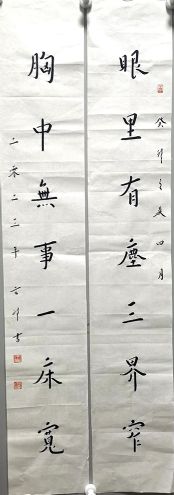 癸卯之夏四月
眼里有塵三界窄
胸中無事一床寬
二零二三年